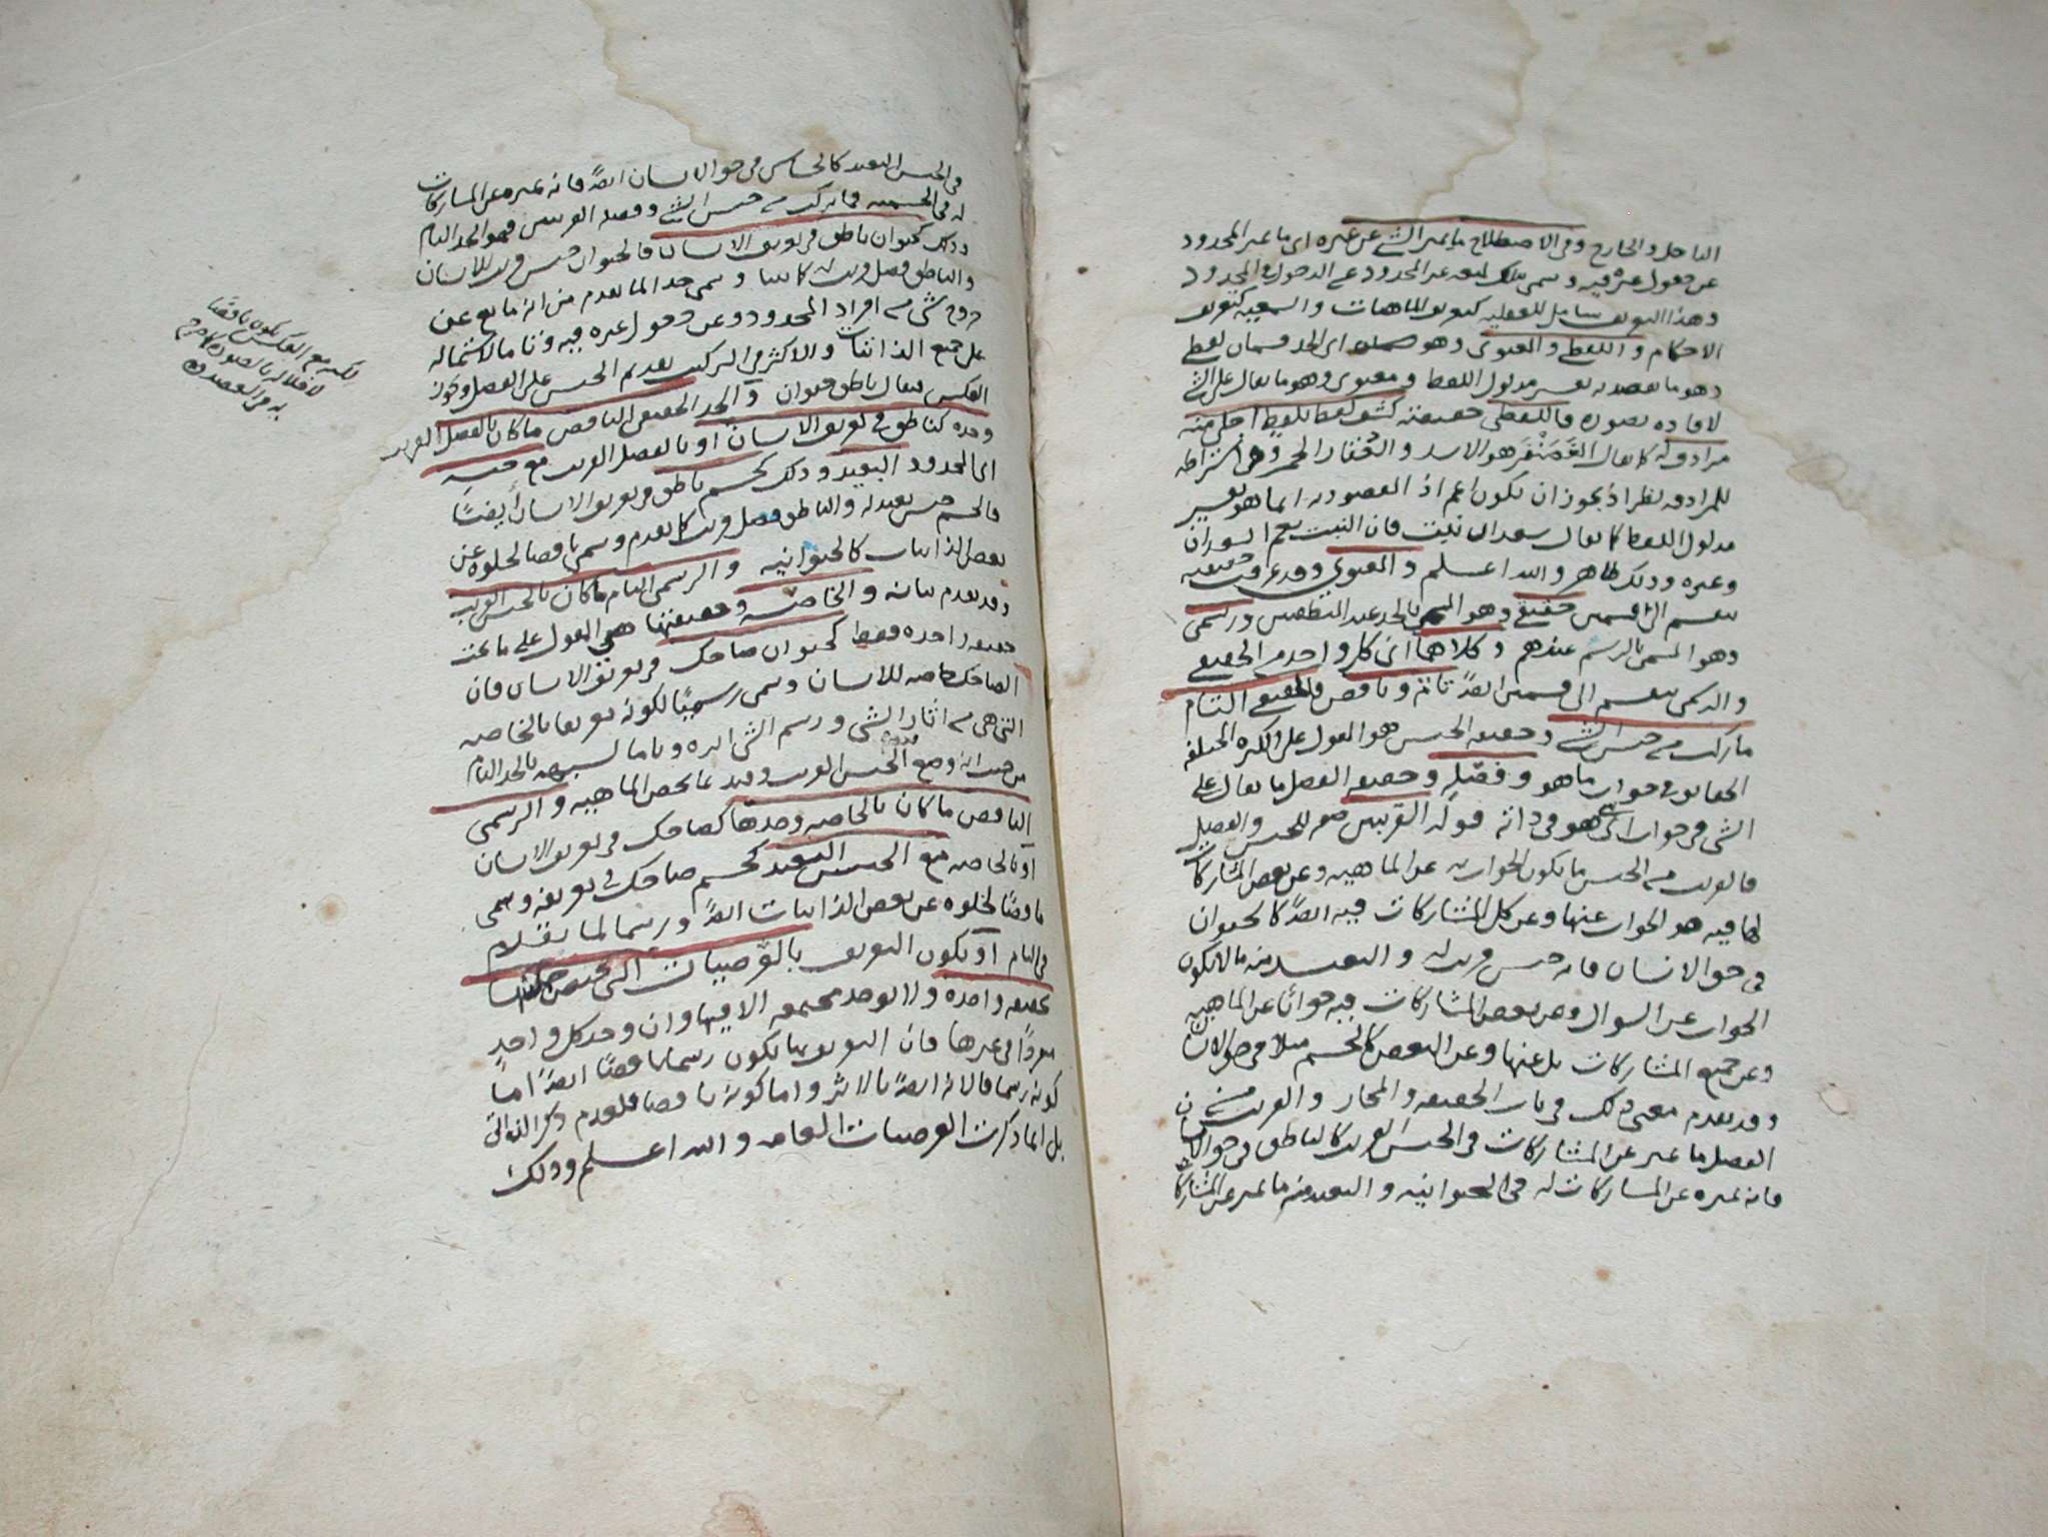 الداخل والخارج وفي الاصطلاح ما يميز الشي عن غيره اي ما يميز المحدود
عن دخول غيره فيه وسمى بذلك لمنعه غير المحدود عن الدخول في المحدود
وهذا التعريف شامل للعقليه كتعريف الماهيات والسمعيه كتعريف
الاحكام واللفظي والمعنوي وهو اي الحد قسمان لفظي
وهو ما يقصد به تفسير مدلول اللفظ ومعنوي وهو ما يقال على الشي
لافاده تصوره فاللفظي حقيقته كشف لفظ بلفظ اجلى منه
مرادف له كما يقال الغضنفر هو الاسد والعقار الخمر وفي اشتراطه
للمرادفه نظر اذ يجوز ان يكون اعم اذ المقصود به انما هو تفسير
مدلول اللفظ كما يقال سعدان نبت فان النبت يعم السعدان
وغيره وذلك ظاهر والله اعلم والمعنوي وقد عرفت حقيقته
ينقسم الى قسمين حقيقي وهو المسمى بالحد عند المنطقيين ورسمي
وهو المسمى بالرسم عندهم وكلاهما اي كل واحد من الحقيقي
والرسمي ينقسم الى قسمين ايضاً تام وناقص فالحقيقي التام
ما ركب من جنس الشي وحقيقه الجنس هو المقول على الكثره المختلفه
الحقايق في جواب ما هو وفصله وحقيقه الفصل ما يقال على
الشي في جواب اي شي هو في ذاته قوله القريبين صفه للجنس والفصل
فالقريب من الجنس ما يكون الجواب به عن الماهيه وعن بعض المشاركات
لها فيه هو الجواب عنها وعن كل المشاركات فيه ايضاً كالحيوان
في حق الانسان فانه جنس قريب له والبعيد منه ما لا يكون
الجواب عن السوال وعن بعض المشاركات فيه جواباً عن الماهيه
وعن جميع المشاركات بل عنها وعن البعض كالجسم مثلا في حق الانسان
وقد تقدم معنى ذلك في باب الحقيقه والمجاز والقريب من
الفصل ما يميز عن المشاركات في الجنس القريب كالناطق في حق الانسان
فانه يميزه عن المشاركات له في الحيوانيه والبعيد منه ما يميز عن المشاركات
في الجنس البعيد كالحساس في حق الانسان ايضاً فانه يميزه عن المشاركات
له في الجسميه فما تركب من جنس الشي وفصله القريبين فهو الحد التام
وذلك كحيوان ناطق في تعريف الانسان فالحيوان جنس قريب للانسان
والناطق فصل قريب له كما بينا وسمى حدا لما تقدم من انه مانع عن
خروج شي من افراد المحدود وعن دخول غيره فيه وتاما لاشتماله
على جميع الذاتيات والاكثر في التركيب تقديم الجنس على الفصل ويجوز
العكس فيقال ناطق حيوان والحد الحقيقي الناقص ما كان بالفصل القريب
وحده كناطق في تعريف الانسان او بالفصل القريب مع جنسه
اي المحدود البعيد وذلك كجسم ناطق في تعريف الانسان ايضاً
فالجسم جنس بعيد له والناطق فصل قريب كما تقدم وسمى ناقصا لخلوه عن
بعض الذاتيات كالحيوانيه والرسمي التام ما كان بالجنس القريب
وقد تقدم بيانه والخاصه وحقيقتها هي المقول على ما تحت
حقيقه واحده فقط كحيوان ضاحك في تعريف الانسان فان
الضاحك خاصه للانسان وسمى رسمياً لكونه تعريفا بالخاصه
التي هي من اثار الشي ورسم الشي اثره وتاما لشبهه بالحد التام
من حيث انه وضع فيه الجنس القريب وقيد بما يخص الماهيه والرسمي
الناقص ما كان بالخاصه وحدها كضاحك في تعريف الانسان
او بالخاصه مع الجنس البعيد كجسم ضاحك في تعريفه وسمى
ناقصاً لخلوه عن بعض الذاتيات ايضاً ورسما لما تقدم
في التام او يكون التعريف بالعرضيات التي تختص جملتها
بحقيقه واحده ولا توجد مجتمعه الا فيها وان وجد كل واحدٍ
مفرداً في غيرها فان التعريف بها يكون رسما ناقصاً ايضاً اما
كونه رسما فلانه ايضاً بالاثر واما كونه ناقصا فلعدم ذكر الذاتي
بل انما ذكرت العرضيات العامه والله اعلم وذلك
لكنه مع العكس يكون ناقصا
لاخلاله بالصوره